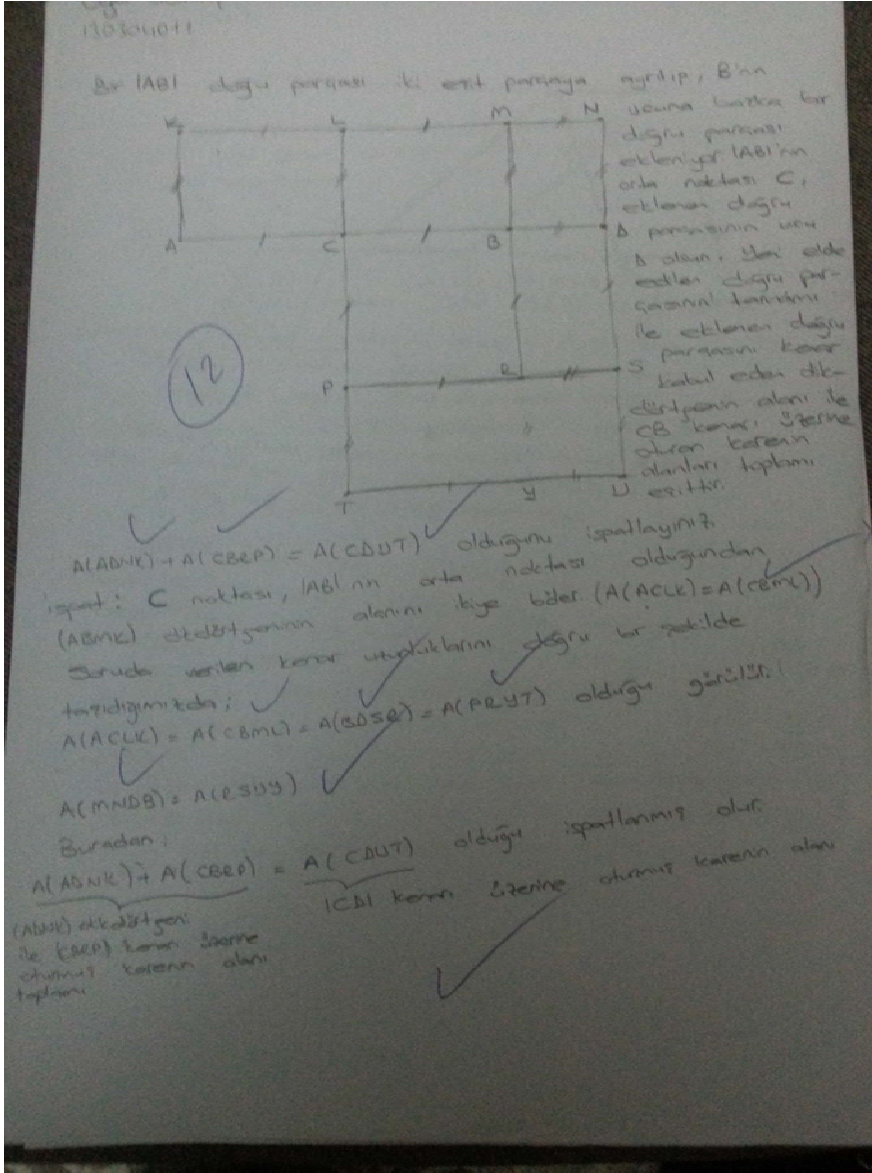 130304011
Bir |AB| doğru parçası iki eşit parçaya ayrılıp, B'nin
ucuna başka bir
doğru parçası
ekleniyor |AB|'nin
orta noktası C,
eklenen doğru
parçasının ucu
D olsun. Yeni elde
edilen doğru par-
çasının tamamı
ile eklenen doğru
parçasını kenar
kabul eden dik-
dörtgenin alanı ile
CB kenarı üzerine
oturan karenin
alanları toplamı
eşittir.
K L M N
A C B D
12
P R S
T Y U
A(ADNK) + A(CBRP) = A(CDUT) olduğunu ispatlayınız.
ispat: C noktası, |AB|'nin orta noktası olduğundan
(ABMK) dikdörtgeninin alanını ikiye böler (A(ACLK) = A(CBML))
Soruda verilen kenar uzunluklarını doğru bir şekilde
taşıdığımızda;
A(ACLK) = A(CBML) = A(BDSR) = A(PRYT) olduğu görülür.
A(MNDB) = A(RSUY)
Buradan;
A(ADNK) + A(CBRP) = A(CDUT) olduğu ispatlanmış olur.
|CD| kenarı üzerine oturmuş karenin alanı
(ADNK) dikdörtgeni
ile (CBRP) kenarı üzerine
oturmuş karenin alanı
toplamı